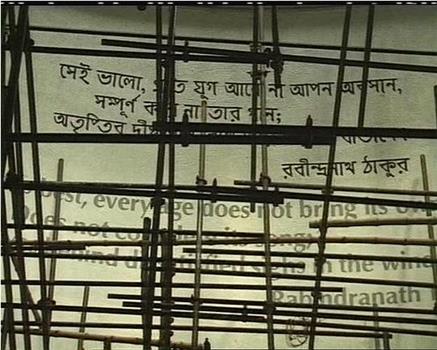 সেই ভালো, প্রতি যুগ আনে না আপন অবসান,
সম্পূর্ণ করে না তার গান;
অতৃপ্তির
রবীন্দ্রনাথ ঠাকুর
best, every age does not bring its
Does not complete its song,
behind dissatisfied sighs in the wind
Rabindranath